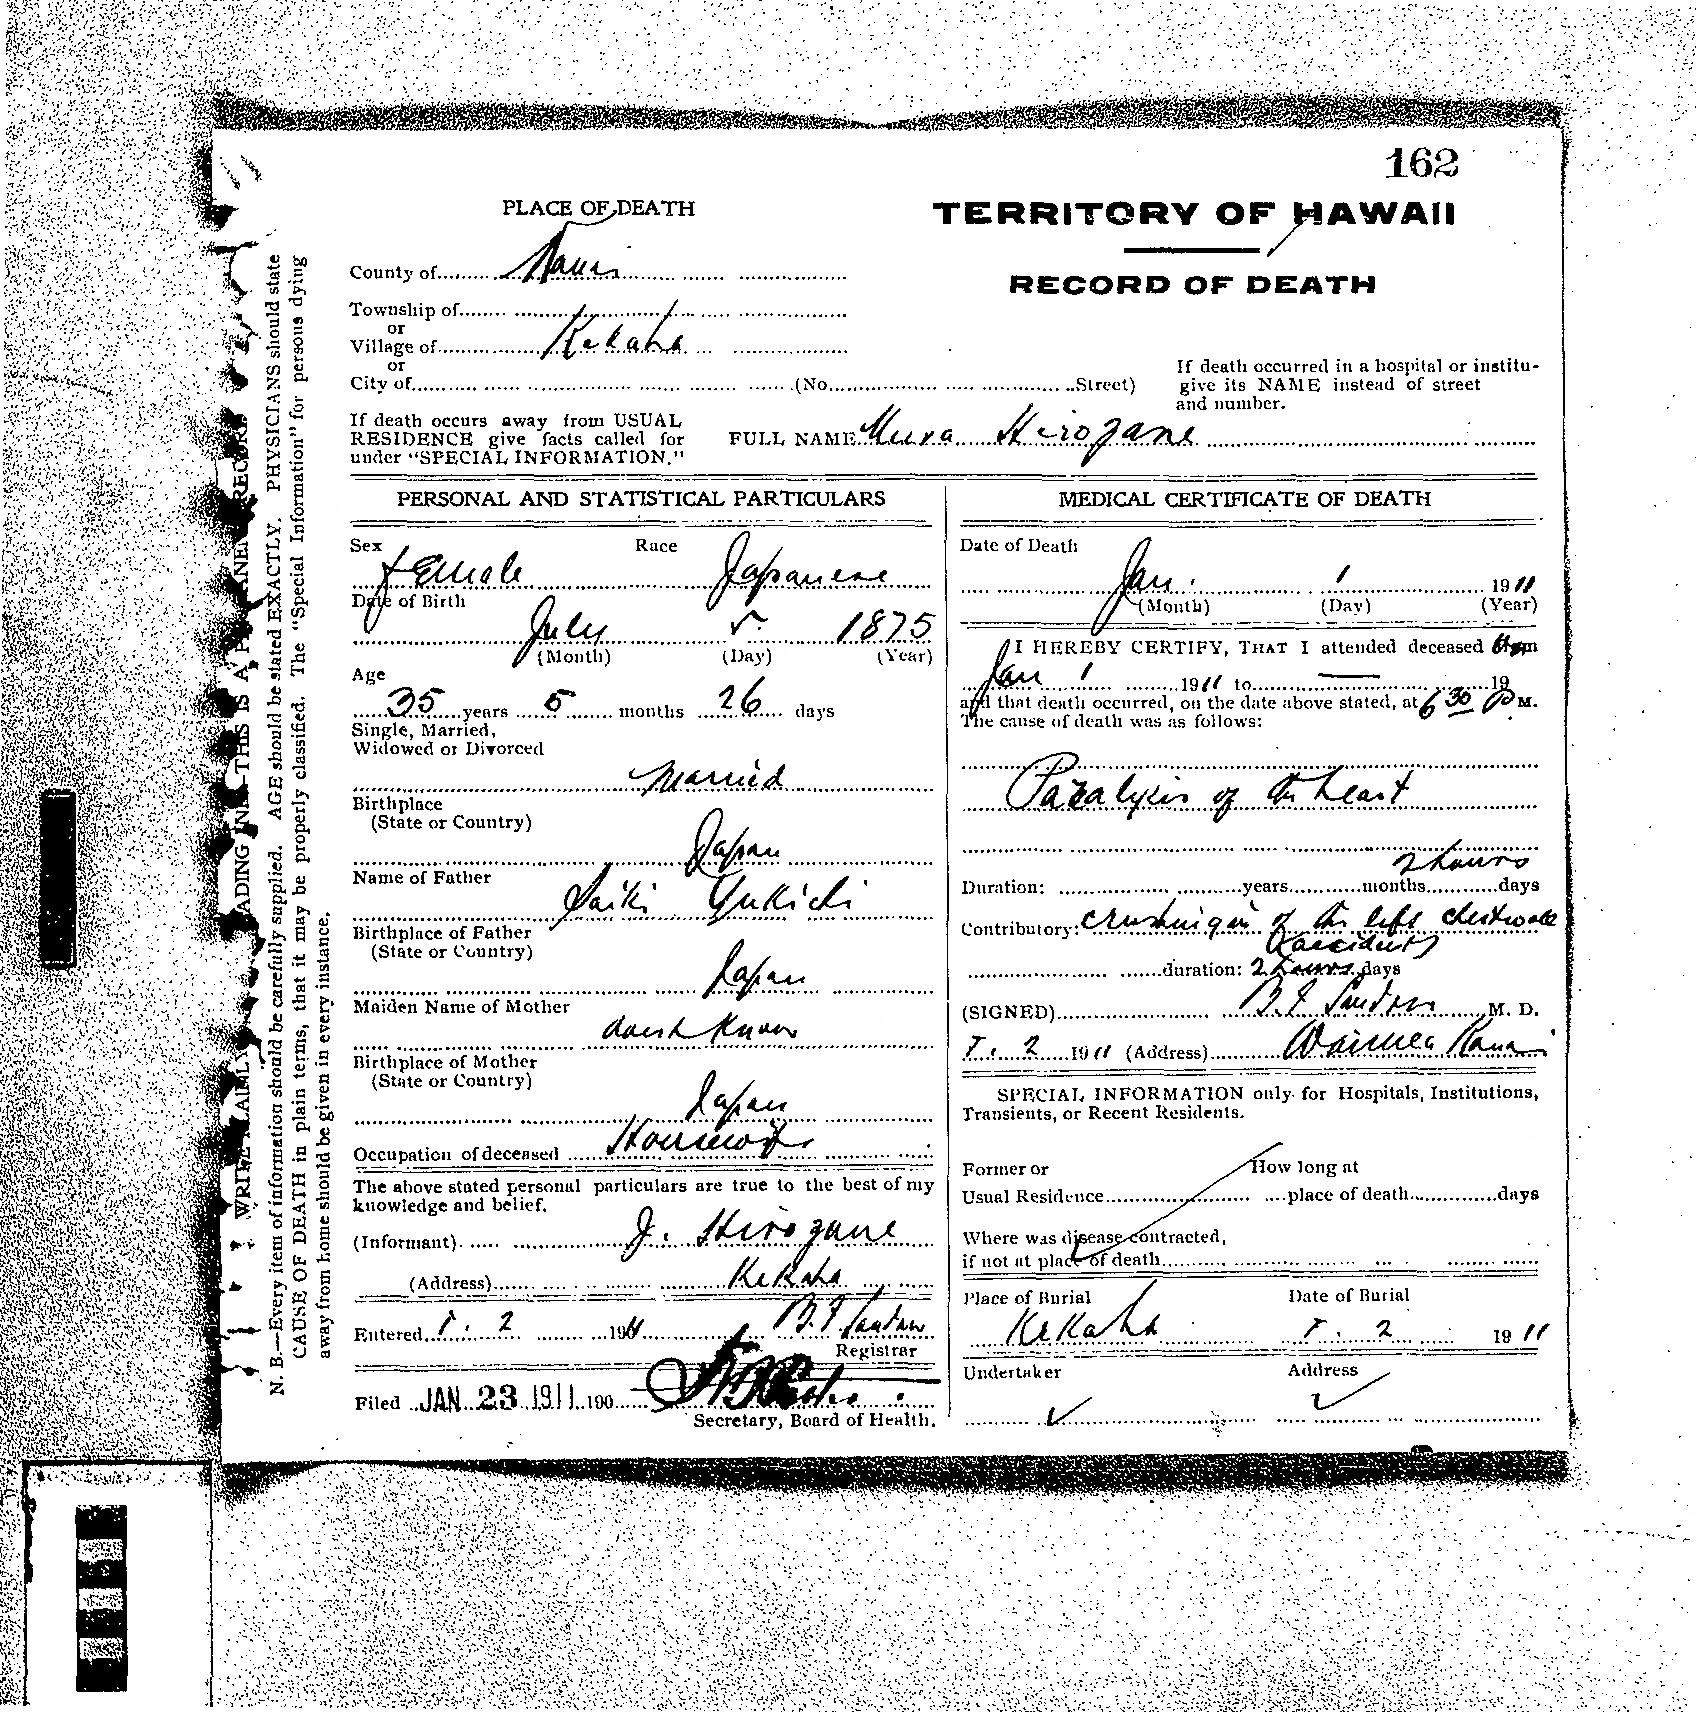 162
PLACE OF DEATH
TERRITORY OF HAWAII
RECORD OF DEATH
County of Kauai
Township of
or
Village of Kekaha
or
City of (No. Street)
If death occurred in a hospital or institu-
give its NAME instead of street
and number.
If death occurs away from USUAL
RESIDENCE give facts called for
under "SPECIAL INFORMATION."
FULL NAME Hirozane
PERSONAL AND STATISTICAL PARTICULARS
Sex Race
female Japanese
Date of Birth
July 5 1875
(Month) (Day) (Year)
Age
35 years 5 months 26 days
Single, Married,
Widowed or Divorced
Married
Birthplace
(State or Country)
Japan
Name of Father Saiki Yukichi
Birthplace of Father
(State or Country)
Japan
Maiden Name of Mother
dont know
Birthplace of Mother
(State or Country)
Japan
Occupation of deceased Housewife
The above stated personal particulars are true to the best of my
knowledge and belief.
(Informant) J. Hirozane
(Address) Kekaha
Entered I. 2 1911 B. F. Sandow
Registrar
Filed JAN 23 1911 190
Secretary, Board of Health.
MEDICAL CERTIFICATE OF DEATH
Date of Death
Jan. 1 1911
(Month) (Day) (Year)
I HEREBY CERTIFY, THAT I attended deceased from
Jan 1 1911 to — 19
and that death occurred, on the date above stated, at 6 30 P M.
The cause of death was as follows:
Paralysis of the heart
2 hours
Duration: years months days
Contributory: crushing in of the left chestwall
(accident)
duration: 2 hours days
(SIGNED) B. F. Sandow M. D.
I. 2 1911 (Address) Waimea Kauai
SPECIAL INFORMATION only for Hospitals, Institutions,
Transients, or Recent Residents.
Former or How long at
Usual Residence place of death days
Where was disease contracted,
if not at place of death
Place of Burial Date of Burial
Kekaha I. 2 1911
Undertaker Address
WRITE PLAINLY FADING INK—THIS IS A PERMANENT RECORD
N. B.—Every item of information should be carefully supplied. AGE should be stated EXACTLY. PHYSICIANS should state
CAUSE OF DEATH in plain terms, that it may be properly classified. The "Special Information" for persons dying
away from home should be given in every instance.